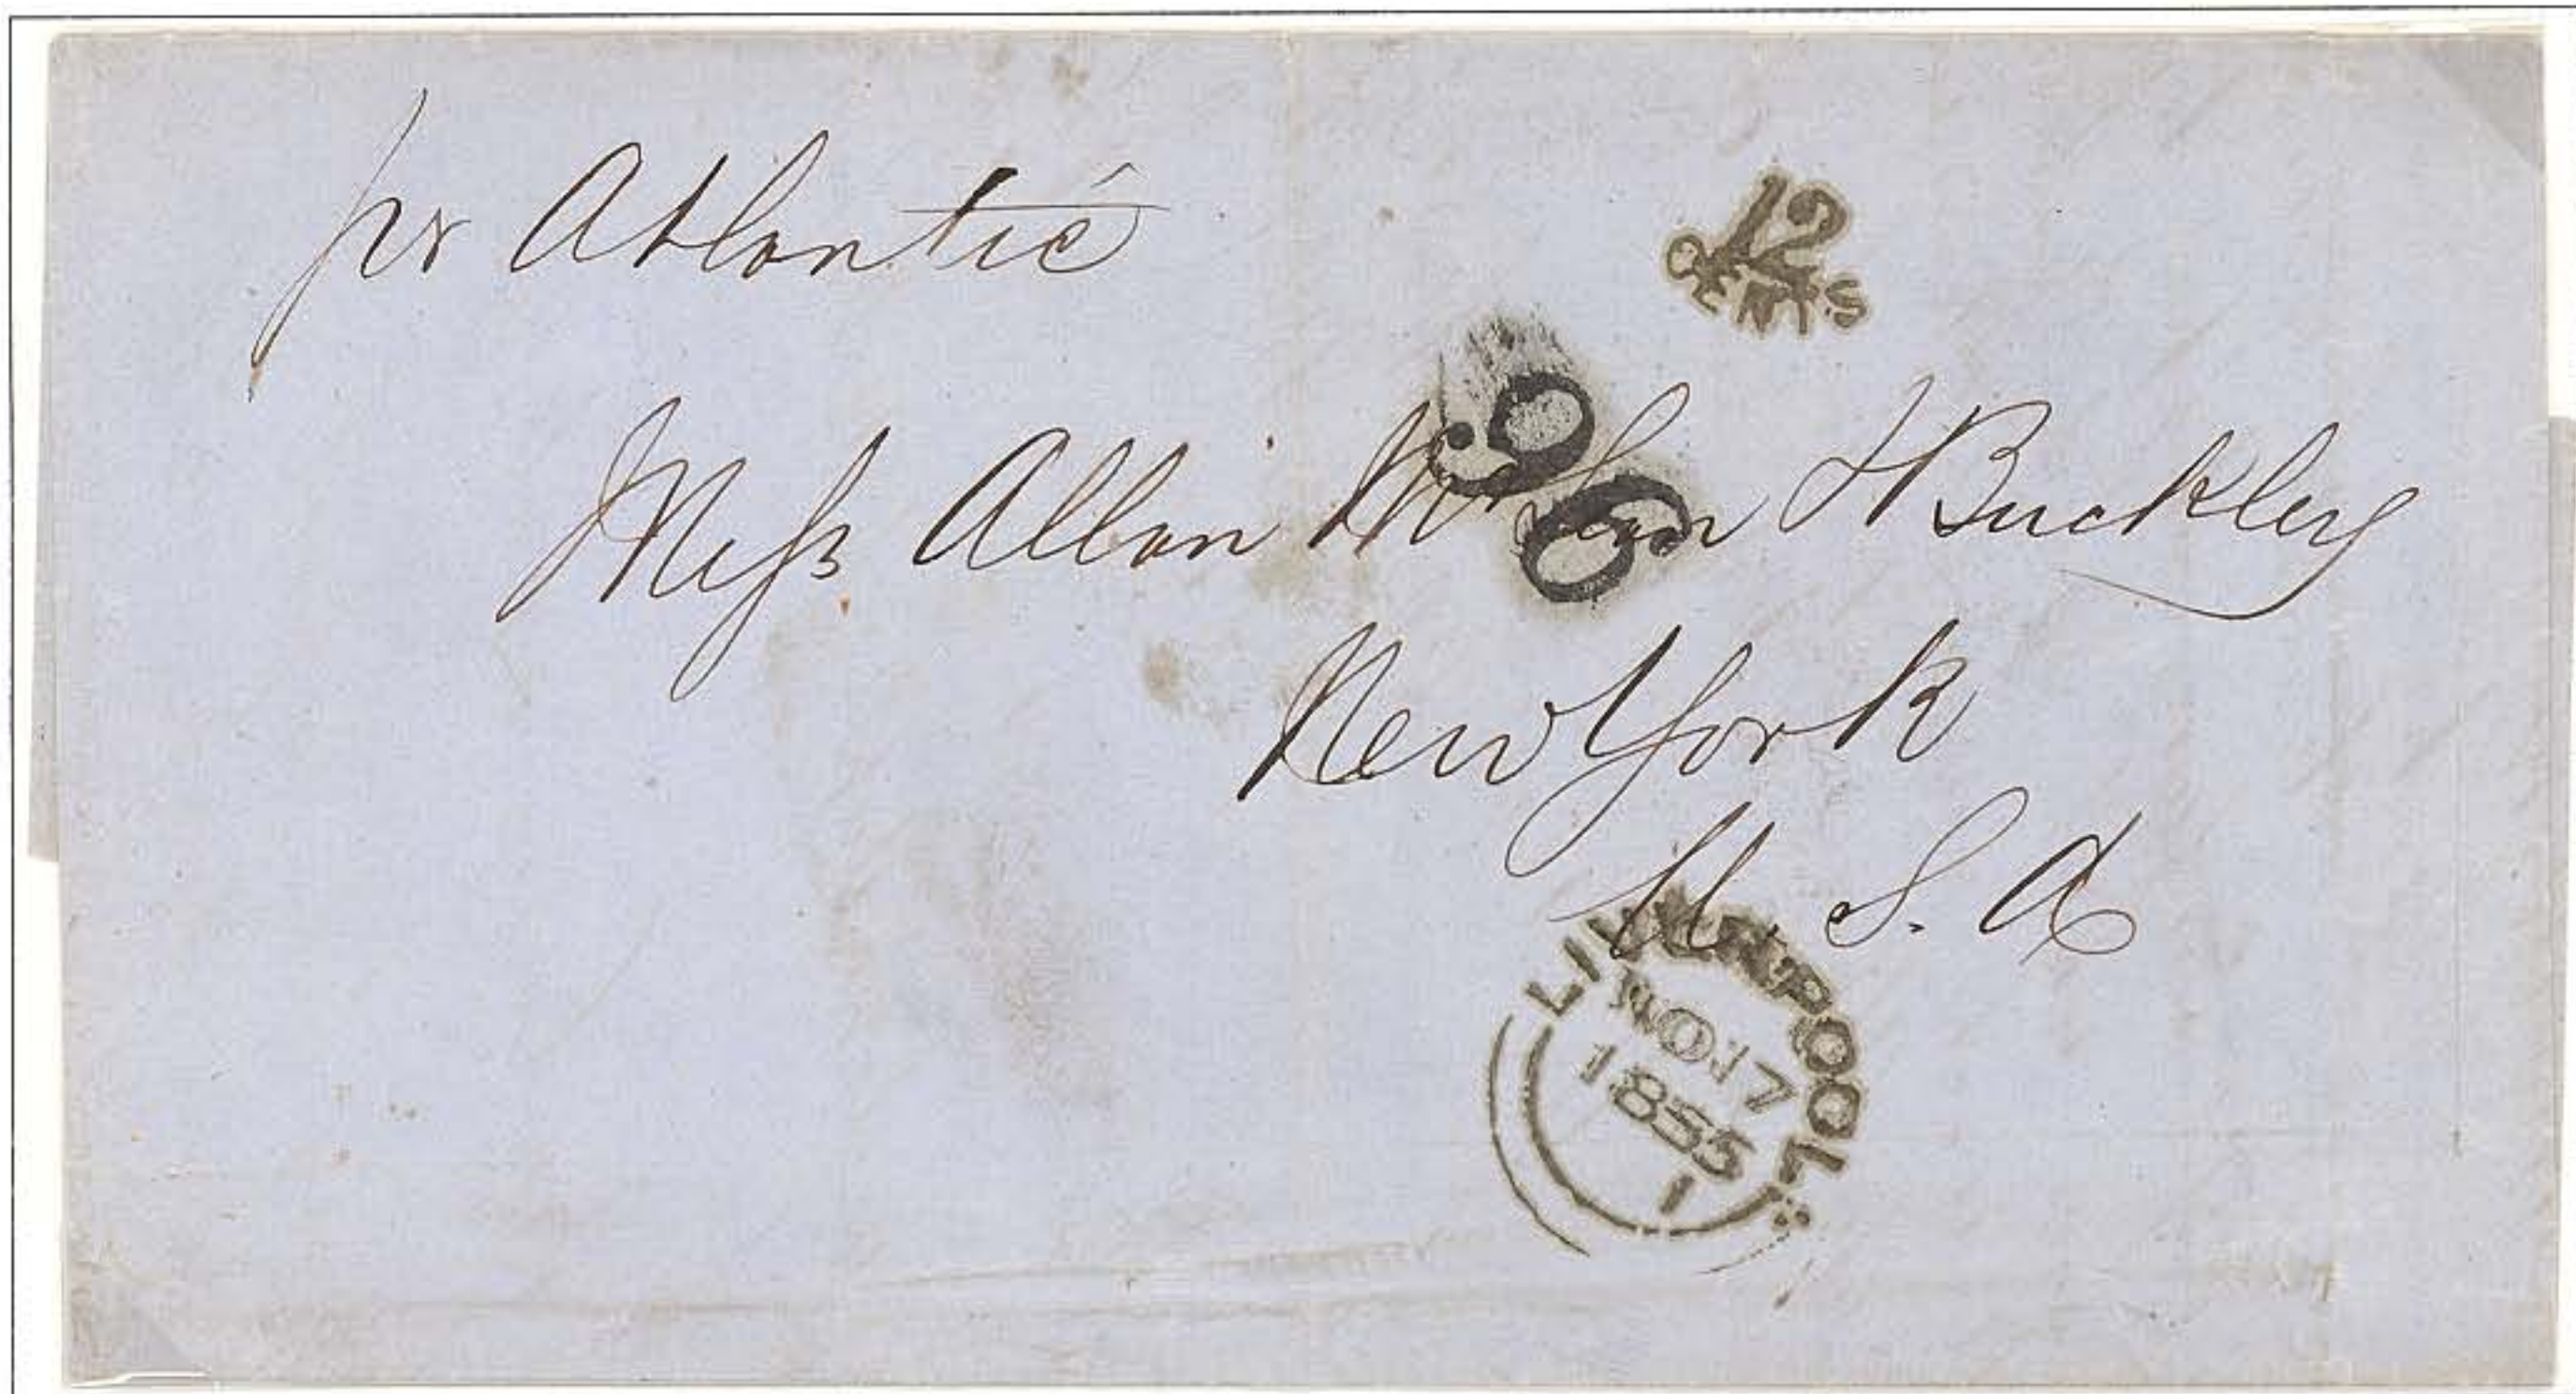 pr Atlantic
12
CENTS
96
Messrs Allan & Buckley
New York
U. S. A
LIVERPOOL
NO 17
1855
1